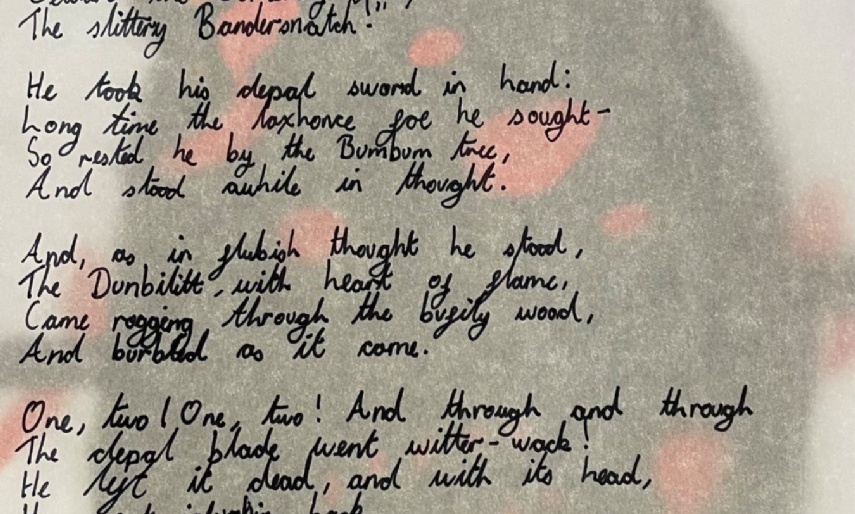 The slittery Bandersnatch!"
He took his depal sword in hand:
Long time the loxhonce foe he sought-
So rested he by the Bumbum tree,
And stood awhile in thought.
And, as in flubish thought he stood,
The Dunbilitt, with heart of flame,
Came rogging through the bugily wood,
And burbled as it came.
One, two! One, two! And through and through
The depal blade went witter-wack!
He left it dead, and with its head,